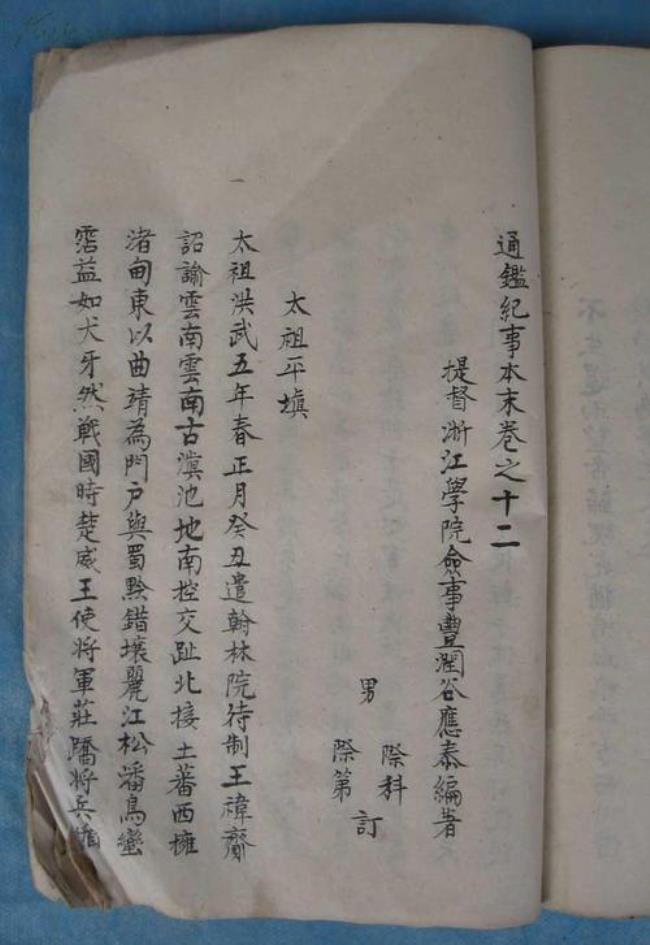 通鑑紀事本末卷之十二
提督浙江學院僉事豐潤谷應泰編著
男
際科
際第
訂
太祖平塡
太祖洪武五年春正月癸丑遣翰林院待制王禕齎
詔諭雲南雲南古滇池地南控交趾北接土蕃西擁
渚甸東以曲靖為門户與蜀黔錯壤麗江松潘烏蠻
霑益如犬牙然戰國時楚威王使將軍莊蹻將兵